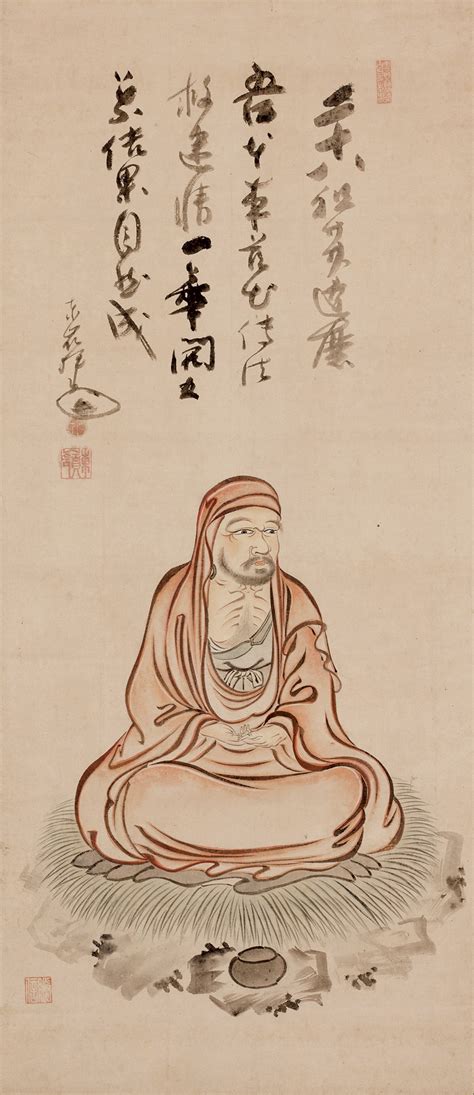 二十八祖菩達磨
吾本來茲土傳法
救迷情一華開五
葉結果自然成